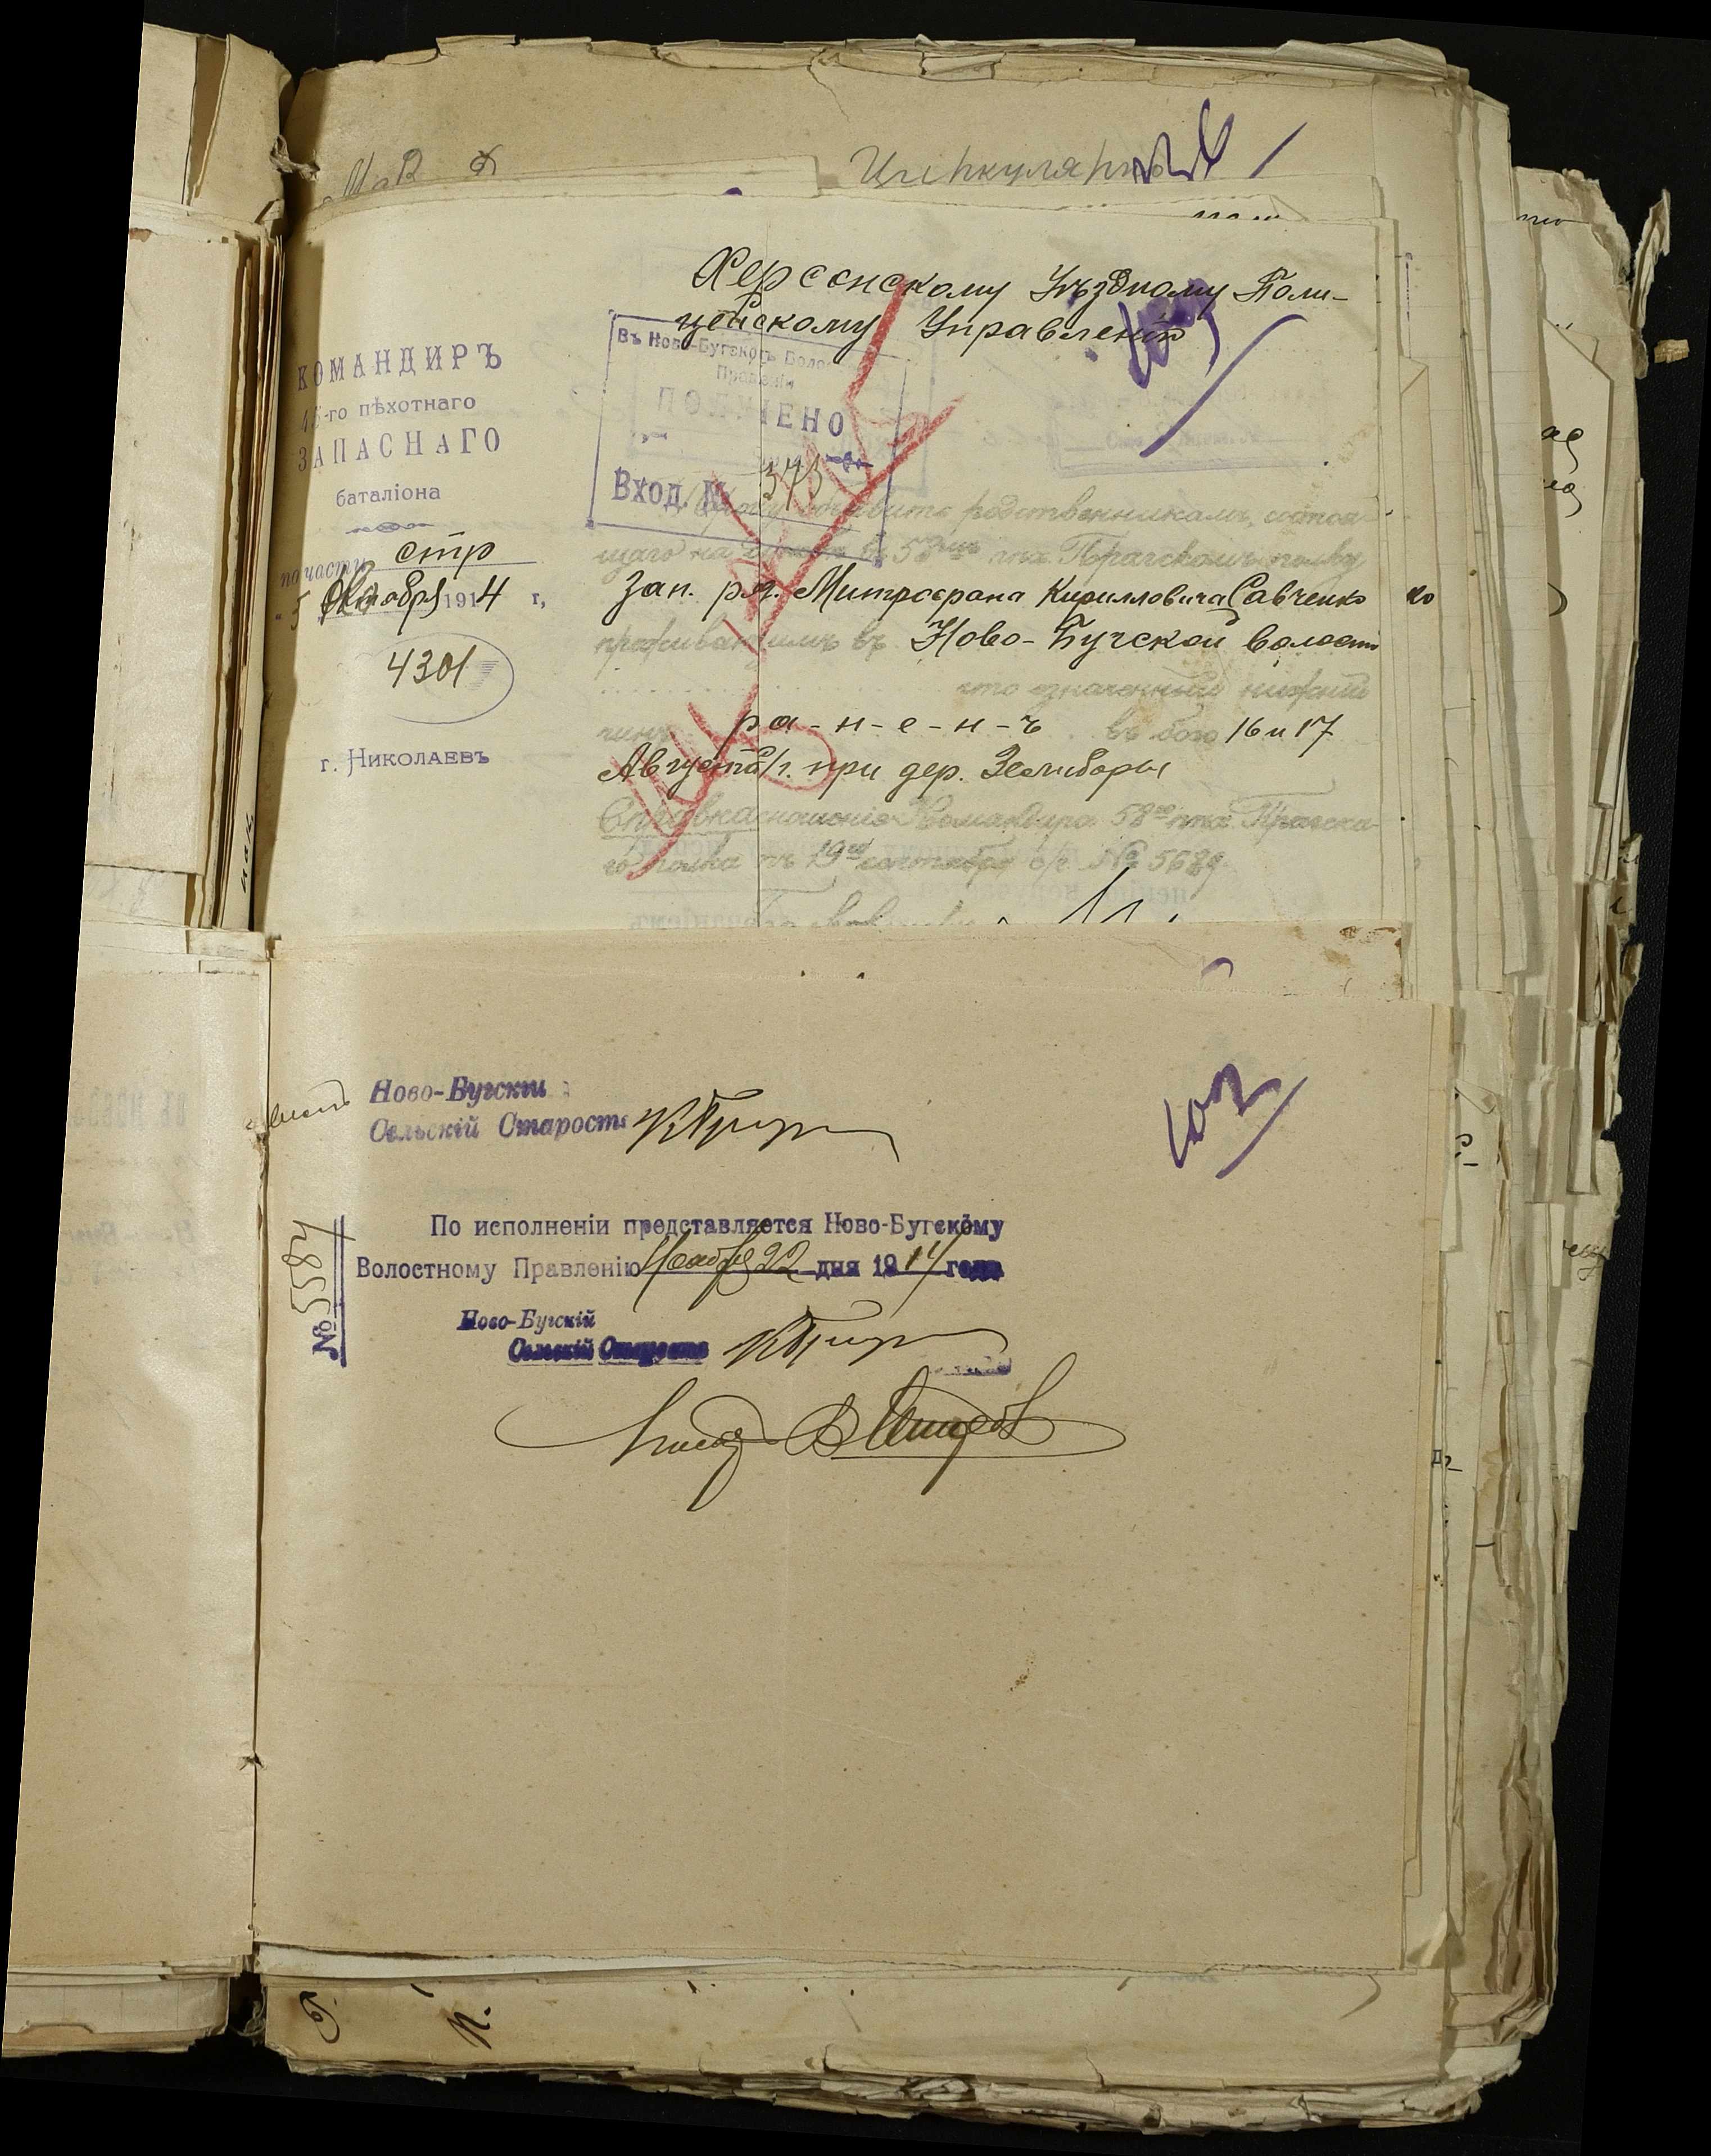 Циркулярно
Херсонскому Уѣздному Поли-
цейскому Управленію
КОМАНДИРЪ
45-го пѣхотнаго
ЗАПАСНАГО
баталіона
по части стр
"5 Октября 1914 г,
4301
г. НИКОЛАЕВЪ
Въ Ново-Бугское Волос
Правленіи
ПОЛУЧЕНО
Вход. №
Прошу объявить родственникамъ, состоя
щаго на службѣ въ 58мъ пѣх. Прагскомъ полку
Зап. ряд. Митрофана Кирилловича Савченко
проживающимъ въ Ново-Бугской волости
что означенный нижній
чинъ ра-н-е-н-ъ въ бою 16 и 17
Августа с/г. при дер. Зелиборы
Справка: сношеніе Командира 58го пѣх. Прагска-
го полка отъ 19го сентября с/г. № 5689
Ново-Бугскій
Сельскій Староста
102
По исполненіи представляется Ново-Бугскому
Волостному Правленію Ноября 22 дня 1914 года
№ 5584
Ново-Бугскій
Сельскій Староста
Писарь